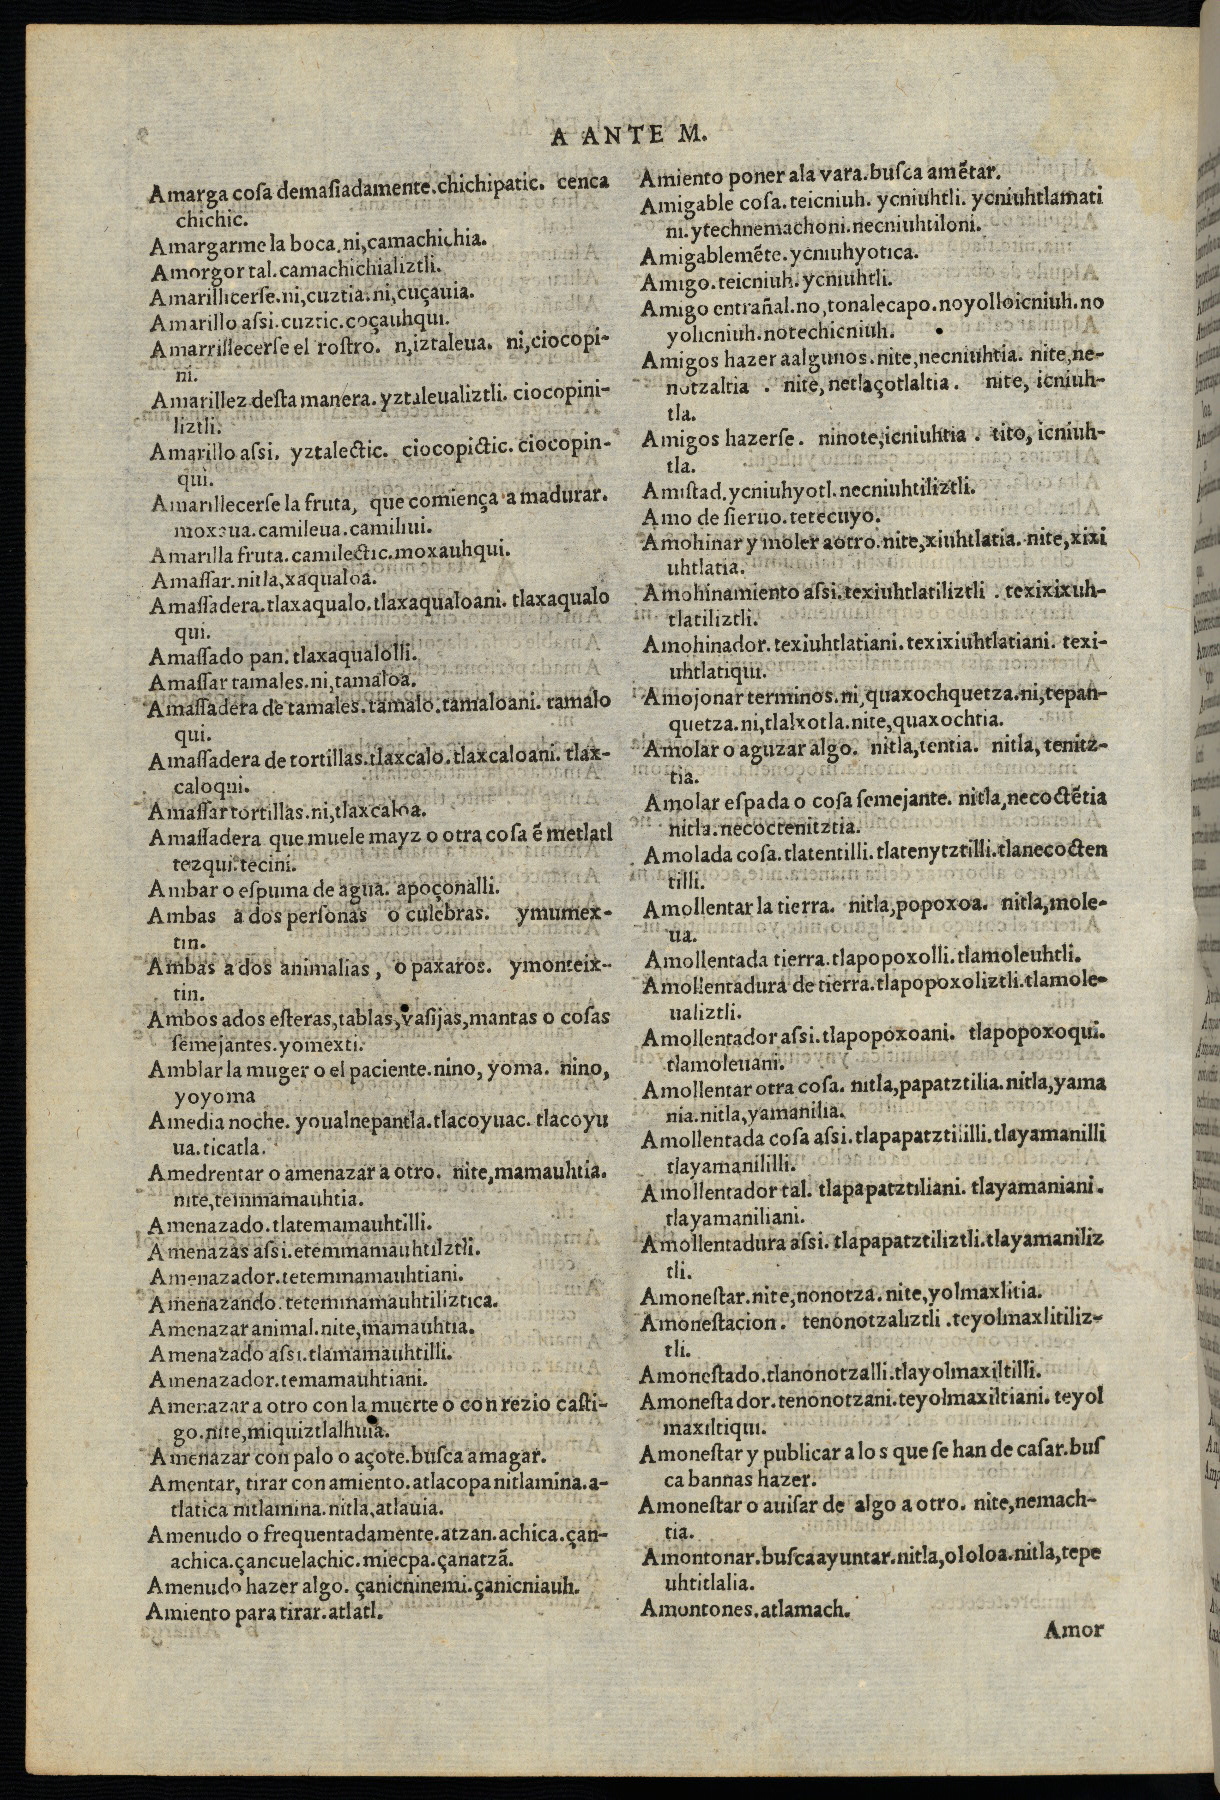 A ANTE M.
Amarga coſa demaſiadamente.chichipatic. cenca
chichic.
Amargarme la boca.ni,camachichia.
Amorgor tal.camachichializtli.
Amarillicerſe.ni,cuztia.ni,cuçauia.
Amarillo aſſi.cuztic.coçauhqui.
Amarrillecerſe el roſtro. n,iztaleua. ni,ciocopi-
ni.
Amarillez deſta manera.yztaleualiztli.ciocopini-
liztli.
Amarillo aſſi. yztalectic. ciocopictic.ciocopin-
qui.
Amarillecerſe la fruta, que comiença a madurar.
moxaua.camileua.camihui.
Amarilla fruta.camilectic.moxauhqui.
Amaſſar.nitla,xaqualoa.
Amaſſadera.tlaxaqualo.tlaxaqualoani.tlaxaqualo
qui.
Amaſſado pan.tlaxaqualolli.
Amaſſar tamales.ni,tamaloa.
Amaſſadera de tamales.tamalo.tamaloani.tamalo
qui.
Amaſſadera de tortillas.tlaxcalo.tlaxcaloani.tlax-
caloqui.
Amaſſar tortillas.ni,tlaxcaloa.
Amaſſadera que muele mayz o otra coſa ẽ metlatl
tezqui.tecini.
Ambar o eſpuma de agua. apoçonalli.
Ambas a dos perſonas o culebras. ymumex-
tin.
Ambas a dos animalias, o paxaros. ymonteix-
tin.
Ambos ados eſteras,tablas,vaſijas,mantas o coſas
ſemejantes.yomexti.
Amblar la muger o el paciente.nino, yoma. nino,
yoyoma
Amedia noche. youalnepantla.tlacoyuac. tlacoyu
ua.ticatla.
Amedrentar o amenazar a otro. nite,mamauhtia.
nite,temmamauhtia.
Amenazado.tlatemamauhtilli.
Amenazas aſſi.etemmamauhtilztli.
Amenazador.tetemmamauhtiani.
Amenazando.tetemmamauhtiliztica.
Amenazar animal.nite,mamauhtia.
Amenazado aſſi.tlamamauhtilli.
Amenazador.temamauhtiani.
Amenazar a otro con la muerte o con rezio caſti-
go.nite,miquiztlalhuia.
Amenazar con palo o açote.buſca amagar.
Amentar, tirar con amiento.atlacopa nitlamina.a-
tlatica nitlamina.nitla,atlauia.
Amenudo o frequentadamente.atzan.achica.çan-
achica.çancuelachic.miecpa.çanatzã.
Amenudo hazer algo. çanicninemi.çanicniauh.
Amiento para tirar.atlatl.
Amiento poner ala vara.buſca amẽtar.
Amigable coſa.teicniuh. ycniuhtli. ycniuhtlamati
ni.ytechnemachoni.necniuhtiloni.
Amigablemẽte.ycniuhyotica.
Amigo.teicniuh.ycniuhtli.
Amigo entrañal.no,tonalecapo.noyolloicniuh.no
yolicniuh.notechicniuh.
Amigos hazer aalgunos.nite,necniuhtia. nite,ne-
notzaltia . nite, netlaçotlaltia. nite, icniuh-
tla.
Amigos hazerſe. ninote,icniuhtia . tito, icniuh-
tla.
Amiſtad.ycniuhyotl.necniuhtiliztli.
Amo de ſieruo.tetecuyo.
Amohinar y moler aotro.nite,xiuhtlatia. nite,xixi
uhtlatia.
Amohinamiento aſſi.texiuhtlatiliztli . texixixuh-
tlatiliztli.
Amohinador.texiuhtlatiani.texixiuhtlatiani. texi-
uhtlatiqui.
Amojonar terminos.ni,quaxochquetza.ni,tepan-
quetza.ni,tlalxotla.nite,quaxochtia.
Amolar o aguzar algo. nitla,tentia. nitla, tenitz-
tia.
Amolar eſpada o coſa ſemejante. nitla,necoctẽtia
nitla.necoctenitztia.
Amolada coſa.tlatentilli.tlatenytztilli.tlanecocten
tilli.
Amollentar la tierra. nitla,popoxoa. nitla,mole-
ua.
Amollentada tierra.tlapopoxolli.tlamoleuhtli.
Amollentadura de tierra.tlapopoxoliztli.tlamole-
ualiztli.
Amollentador aſſi.tlapopoxoani. tlapopoxoqui.
tlamoleuani.
Amollentar otra coſa. nitla,papatztilia.nitla,yama
nia.nitla,yamanilia.
Amollentada coſa aſſi.tlapapatztililli.tlayamanilli
tlayamanililli.
Amollentador tal. tlapapatztiliani. tlayamaniani.
tlayamaniliani.
Amollentadura aſſi. tlapapatztiliztli.tlayamaniliz
tli.
Amoneſtar.nite,nonotza.nite,yolmaxlitia.
Amoneſtacion. tenonotzaliztli .teyolmaxlitiliz-
tli.
Amoneſtado.tlanonotzalli.tlayolmaxiltilli.
Amoneſtador.tenonotzani.teyolmaxiltiani. teyol
maxiltiqui.
Amoneſtar y publicar a los que ſe han de caſar.buſ
ca bannas hazer.
Amoneſtar o auiſar de algo a otro. nite,nemach-
tia.
Amontonar.buſca ayuntar.nitla,ololoa.nitla,tepe
uhtitlalia.
Amontones.atlamach.
Amor